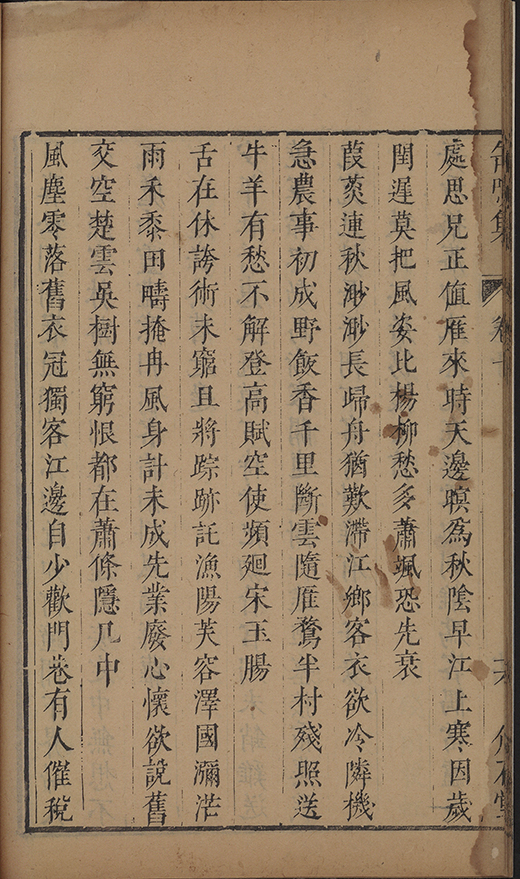 集 卷十
處思兄正值雁來時天邊暝為秋陰早江上寒因歲
閏遲莫把風姿比楊柳愁多蕭颯恐先衰
葭菼連秋渺渺長歸舟猶歎滯江鄉客衣欲冷隣機
急農事初成野飯香千里斷雲隨雁鶩半村殘照送
牛羊有愁不解登高賦空使頻廻宋玉腸
舌在休誇術未窮且將踪跡託漁陽芙容澤國瀰茫
雨禾黍田疇掩冉風身計未成先業廢心懷欲說舊
交空楚雲吳樹無窮恨都在蕭條隱几中
風塵零落舊衣冠獨客江邊自少歡門巷有人催稅